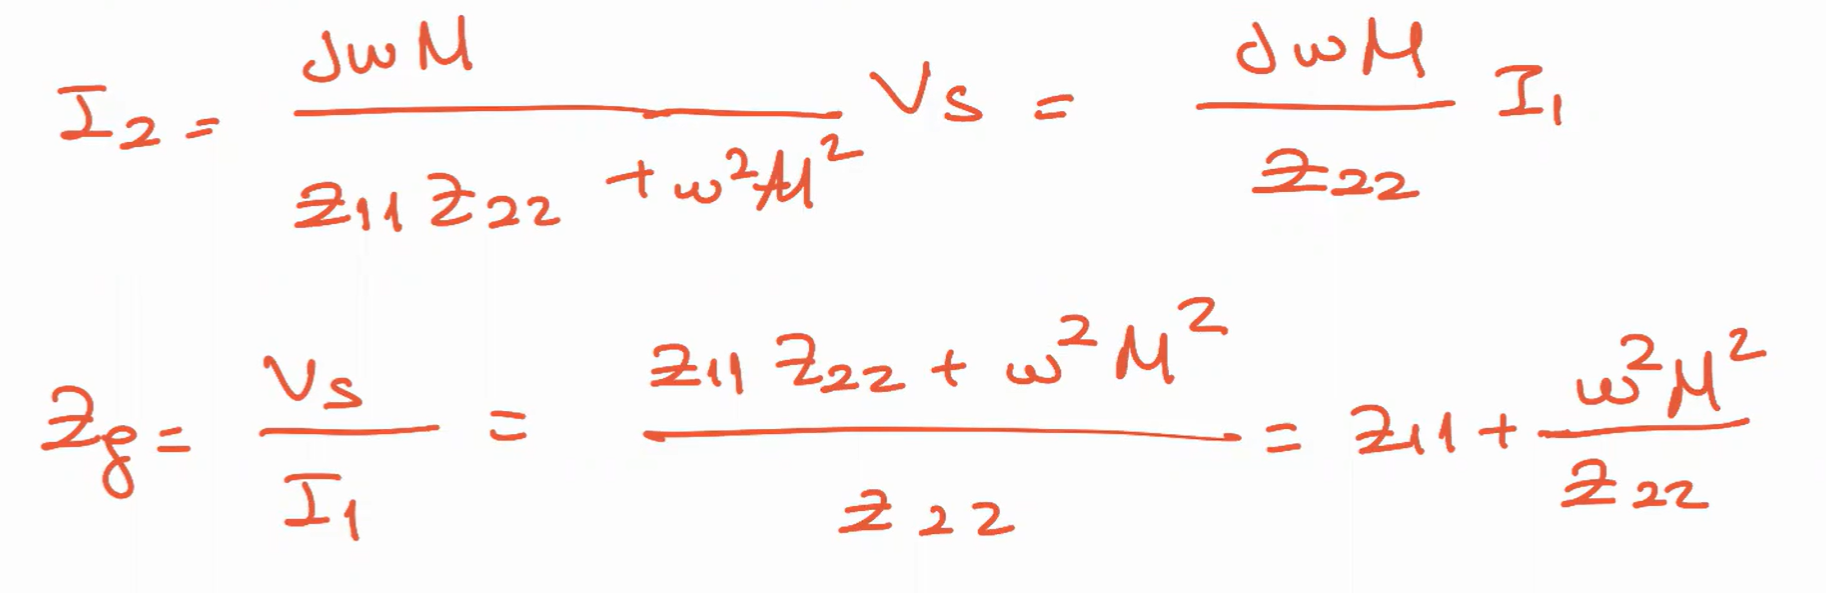 I₂ = jωM / (Z₁₁ Z₂₂ + ω²M²) Vs = jωM / Z₂₂ I₁
Zg = Vs / I₁ = (Z₁₁ Z₂₂ + ω²M²) / Z₂₂ = Z₁₁ + ω²M² / Z₂₂